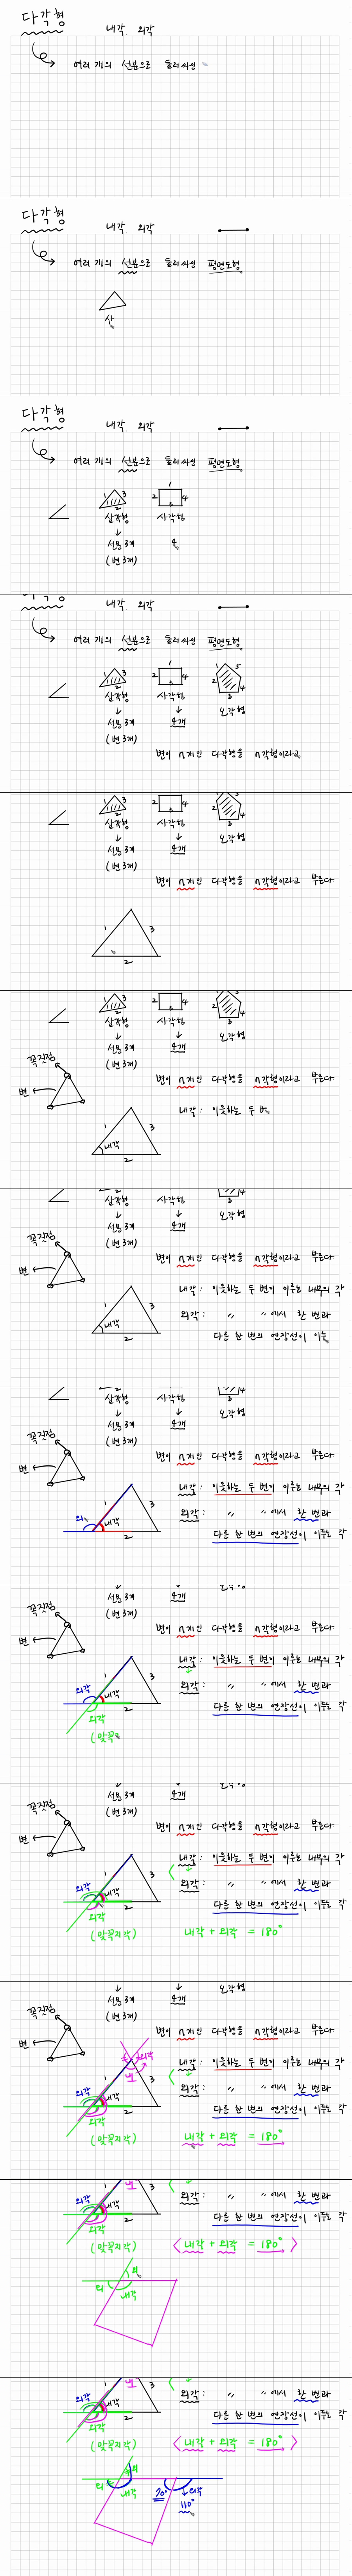 다각형
내각, 외각
여러 개의 선분으로 둘러싸인
다각형
내각, 외각
여러 개의 선분으로 둘러싸인 평면도형
삼
다각형
내각, 외각
여러 개의 선분으로 둘러싸인 평면도형
1 3 2
1 2 3 4
삼각형 사각형
↓
선분 3개 4
(변 3개)
내각, 외각
여러 개의 선분으로 둘러싸인 평면도형
1 3 2
1 2 3 4
1 2 3 4 5
삼각형 사각형 오각형
↓ ↓
선분 3개 4개
(변 3개)
변이 n개인 다각형을 n각형이라고
1 3 2
2 3 4
2 3 4
삼각형 사각형 오각형
↓ ↓
선분 3개 4개
(변 3개)
변이 n개인 다각형을 n각형이라고 부른다
1 3
2
삼각형 사각형 오각형
↓ ↓
선분 3개 4개
(변 3개)
꼭짓점
변이 n개인 다각형을 n각형이라고 부른다
변
내각 : 이웃하는 두 변
1 3
내각
2
삼각형 사각형 오각형
↓ ↓
선분 3개 4개
(변 3개)
꼭짓점
변이 n개인 다각형을 n각형이라고 부른다
변
내각 : 이웃하는 두 변이 이루는 내부의 각
1 3
외각 : 〃 〃에서 한 변과
내각
2
다른 한 변의 연장선이 이루
삼각형 사각형 오각형
↓ ↓
선분 3개 4개
(변 3개)
꼭짓점
변이 n개인 다각형을 n각형이라고 부른다
변
내각 : 이웃하는 두 변이 이루는 내부의 각
1 3
외각 : 〃 〃에서 한 변과
외 내각
2
다른 한 변의 연장선이 이루는 각
↓
선분 3개 4개
(변 3개)
꼭짓점
변이 n개인 다각형을 n각형이라고 부른다
변
내각 : 이웃하는 두 변이 이루는 내부의 각
1 3
외각 : 〃 〃에서 한 변과
외각 내각
2
다른 한 변의 연장선이 이루는 각
외각
(맞꼭
선분 3개 4개
(변 3개)
꼭짓점
변이 n개인 다각형을 n각형이라고 부른다
변
내각 : 이웃하는 두 변이 이루는 내부의 각
1 3
외각 : 〃 〃에서 한 변과
외각 내각
2
다른 한 변의 연장선이 이루는 각
외각
(맞꼭지각)
내각 + 외각 = 180°
↓ ↓ 오각형
선분 3개 4개
(변 3개)
꼭짓점
변이 n개인 다각형을 n각형이라고 부른다
변
외각
내각 : 이웃하는 두 변이 이루는 내부의 각
내
1 3
외각 : 〃 〃에서 한 변과
외각 내각
2
다른 한 변의 연장선이 이루는 각
외각
(맞꼭지각)
내각 + 외각 = 180°
1 내 3
외각 : 〃 〃에서 한 변과
외각 내각
2
다른 한 변의 연장선이 이루는 각
외각
(맞꼭지각)
< 내각 + 외각 = 180° >
외
외 내각
1 내 3
외각 : 〃 〃에서 한 변과
외각 내각
2
다른 한 변의 연장선이 이루는 각
외각
(맞꼭지각)
< 내각 + 외각 = 180° >
외
외 내각
70° ↓ 외각
110°